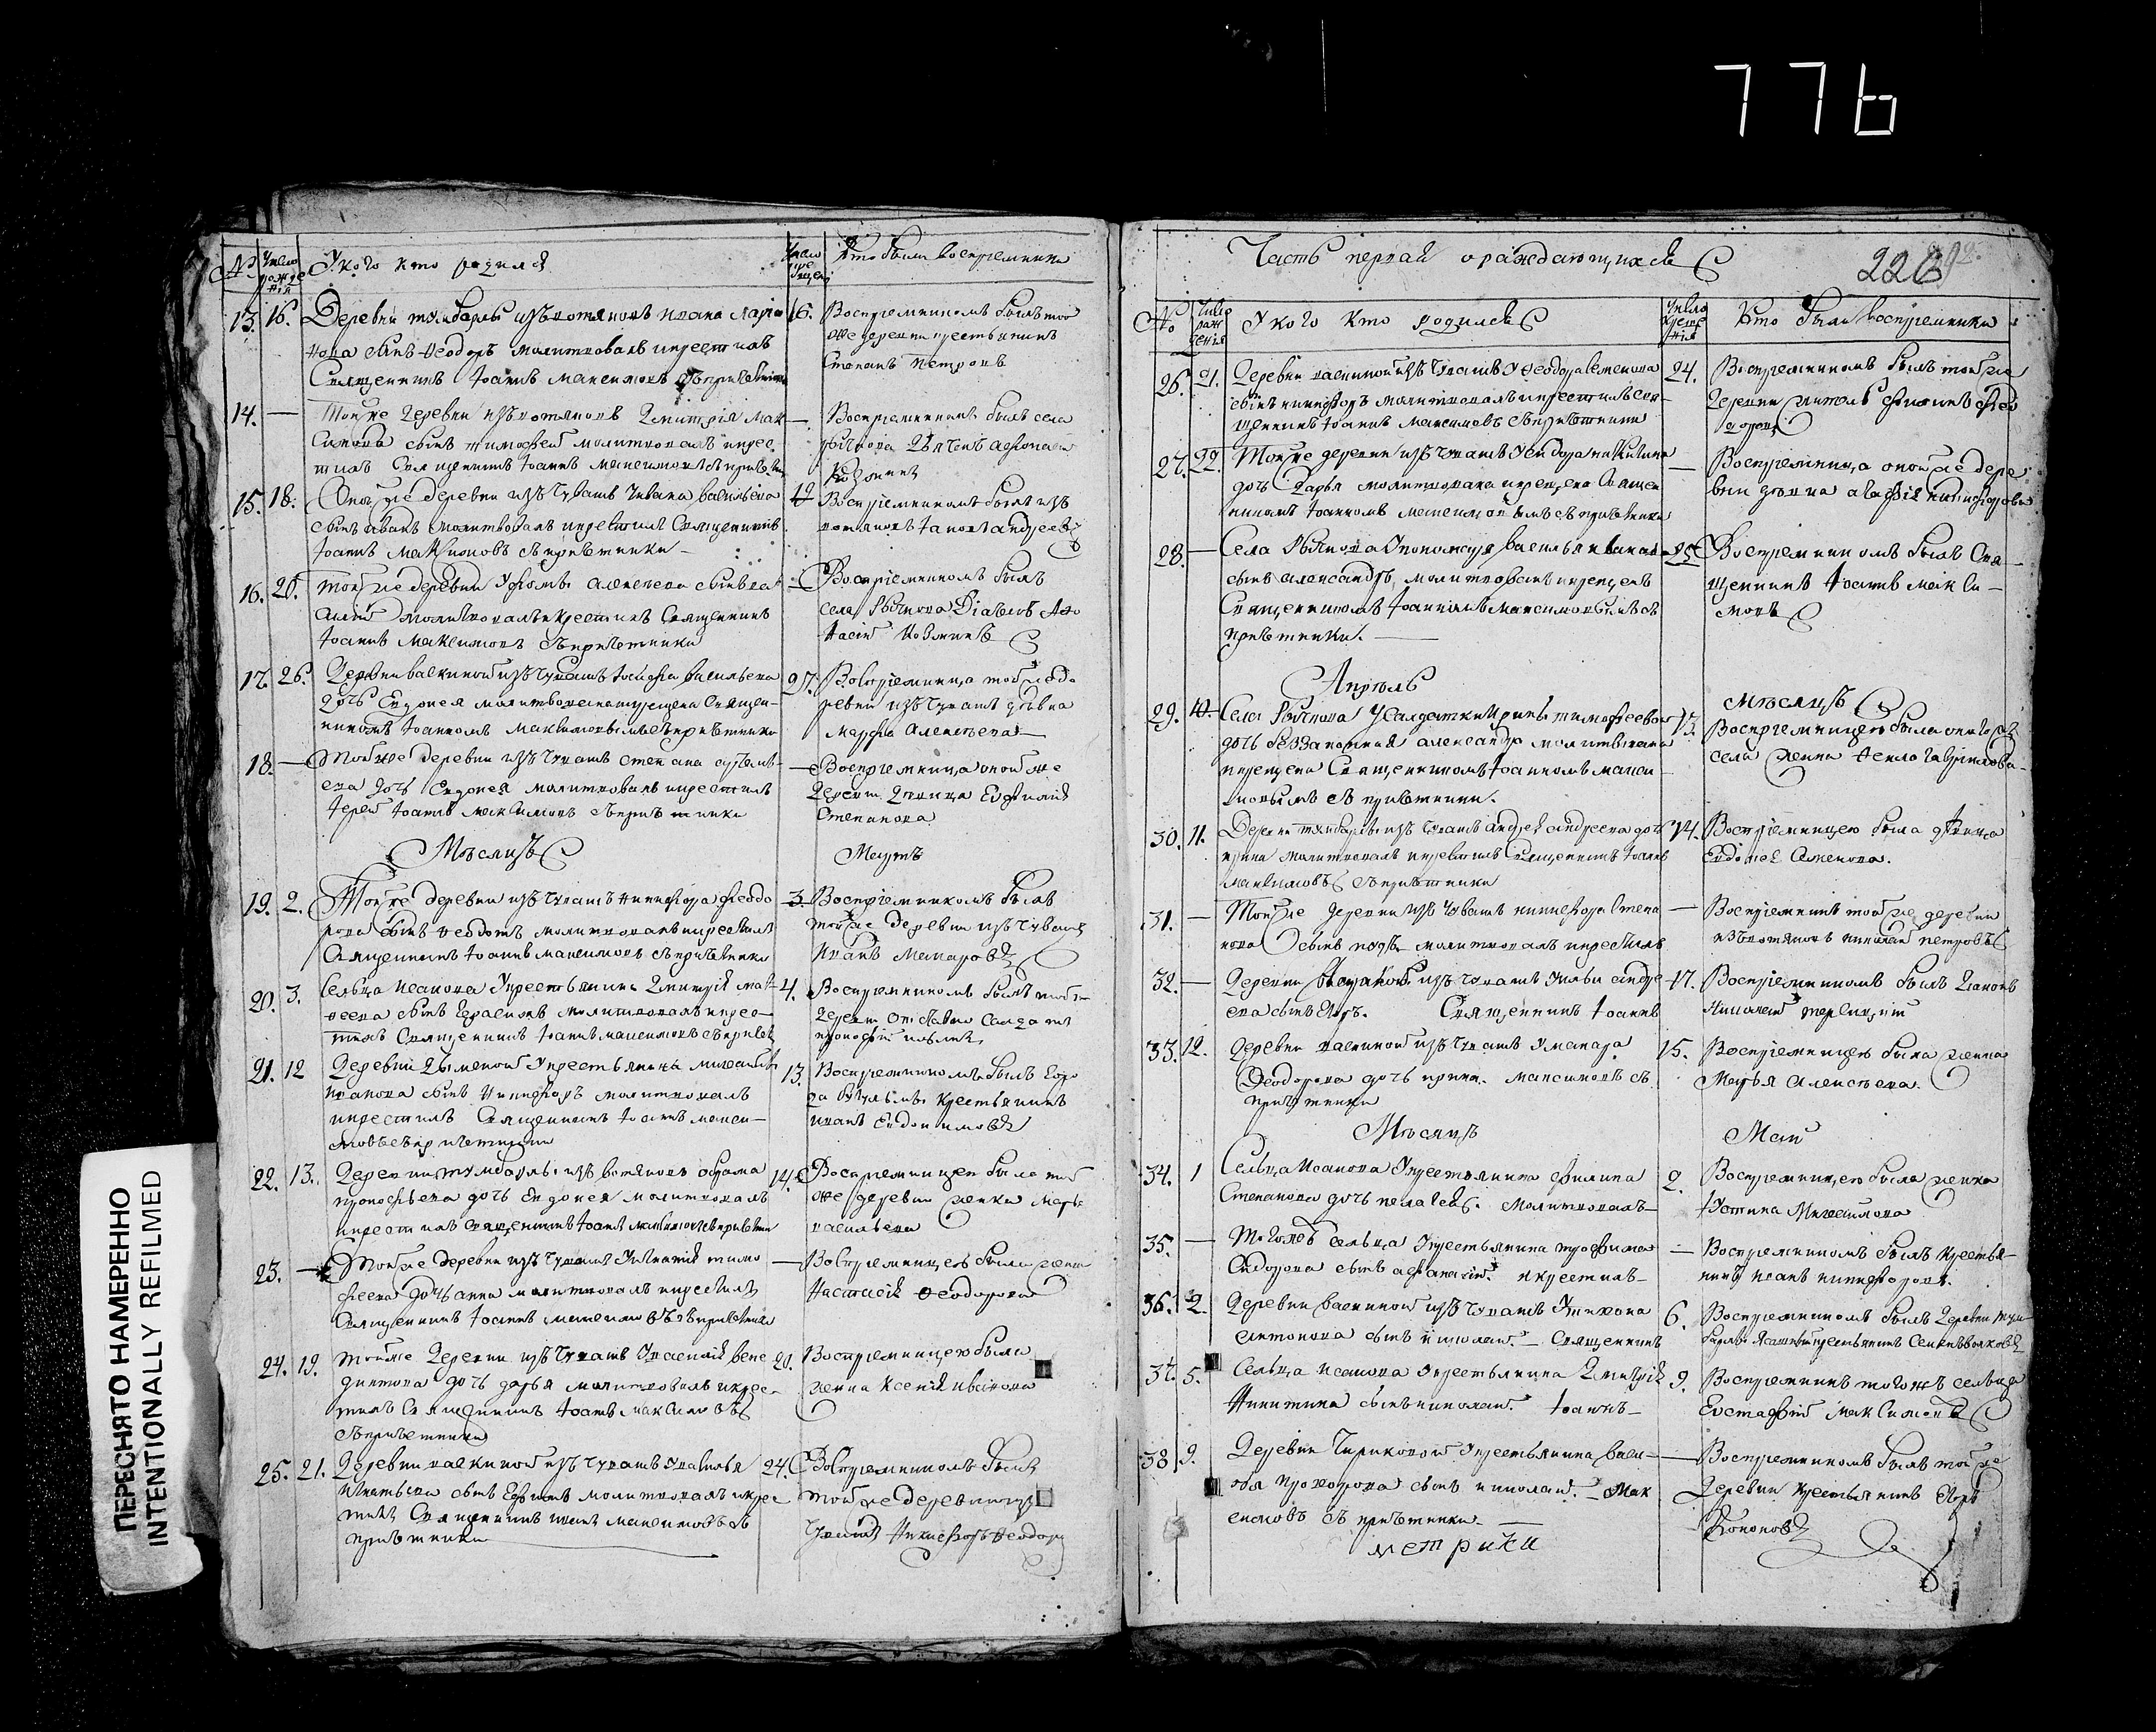 776
ПЕРЕСНЯТО НАМЕРЕННО
INTENTIONALLY REFILMED
№
Число рожденія
У кого кто родился
Число крещенія
Кто были воспріемники
13. 16. Деревни изъ вотяковъ Ивана
сынъ Ѳеодоръ молитвовалъ и крестилъ
Священникъ Іоаннъ Максимовъ съ причетники
16. Воспріемникомъ былъ той
же деревни крестьянинъ
Степанъ Петровъ
14. — Той же деревни изъ вотяковъ Дмитрія Мак
симова сынъ Тимофей молитвовалъ и крес
тилъ Священникъ Іоаннъ Максимовъ съ причетн
— Воспріемникомъ былъ села
15. 18. Оной же деревни изъ чувашъ Ивана Васильева
сынъ Иванъ молитвовалъ и крестилъ Священникъ
Іоаннъ Максимовъ съ причетники —
19 Воспріемникомъ былъ изъ
вотяковъ Яковъ Андреевъ
16. 20. Той же деревни Алексеева сынъ Ва
силій молитвовалъ и крестилъ Священникъ
Іоаннъ Максимовъ съ причетники
— Воспріемникомъ былъ
села Діаконъ Аѳо
насій Козминъ
17. 26. Деревни Васкиной изъ чувашъ Васильева
дочь Евдокея молитвована и крещена Священ-
никомъ Іоанномъ Максимовымъ съ причетники
27. Воспріемница той же де
ревни изъ чувашъ девка
Марфа Алексеева —
18. — Той же деревни изъ чувашъ Степана
ева дочь Евдокея молитвовалъ и крестилъ
Іерей Іоаннъ Максимовъ съ причетники
— Воспріемница оной же
деревни девица Евфимія
Степанова
Мѣсяцъ
Мартъ
19. 2. Той же деревни изъ чувашъ Никифора Феодо
рова сынъ Феодотъ молитвовалъ и крестилъ
Священникъ Іоаннъ Максимовъ съ причетники
3. Воспріемникомъ былъ
той же деревни изъ чувашъ
Иванъ Макаровъ
20. 3. Сельца Исакова У крестьянина Дмитрія Мат-
веева сынъ Герасимъ молитвовалъ и крес-
тилъ Священникъ Іоаннъ Максимовъ съ причет
4. Воспріемникомъ былъ той же
деревни отставной салдатъ
21. 12 Деревни У крестьянина
Иванова сынъ Никифоръ молитвовалъ
и крестилъ Священникъ Іоаннъ Макси-
мовъ съ причетники
13. Воспріемникомъ былъ горо
да крестьянинъ
Иванъ Евдокимовъ
22. 13. Деревни изъ вотяковъ Аврама
Прокофьева дочь Евдокея молитвовалъ
и крестилъ Священникъ Іоаннъ Максимовъ съ причетн
14. Воспріемницею была той
же деревни женка Марья
Васильева
23. — Той же деревни изъ чувашъ У Игнатія Тимо
феева дочь Анна молитвовалъ и крестилъ
Священникъ Іоаннъ Максимовъ съ причетники
— Воспріемницею была женка
Настасія Ѳеодорова
24. 19. Той же Деревни изъ чувашъ У Василія Вене
диктова дочь Дарья молитвовалъ и крес-
тилъ Священникъ Іоаннъ Максимовъ
съ причетники
20. Воспріемницею была
женка Ксенія Иванова
25. 21. Деревни Васкиной изъ чувашъ
Игнатьева сынъ Ефимъ молитвовалъ и крес
тилъ Священникъ Іоаннъ Максимовъ съ
причетники
24. Воспріемникомъ былъ
той же деревни изъ
чувашъ Никифоръ Ѳеодоровъ
Часть первая о раждающихся
226
№
Число рожденія
У кого кто родился
Число крещенія
Кто были воспріемники
26. 21. Деревни Васкиной изъ чувашъ У Феодора Семенова
сынъ Никифоръ молитвовалъ и крестилъ Свя-
щенникъ Іоаннъ Максимовъ съ причетники
24. Воспріемникомъ былъ той же
деревни житель Филипъ Фео
доровъ
27. 22. Той же деревни изъ чувашъ У Сидора Никитина
дочь Дарья молитвована и крещена Священ
никомъ Іоанномъ Максимовымъ съ причетники
— Воспріемница оной же дере
вни девка Агафія Никифорова
28. — Села У пономаря Василья Иванова
сынъ Александръ, молитвованъ и крещенъ
Священникомъ Іоанномъ Максимовымъ съ
причетники. —
25 Воспріемникомъ былъ Свя-
щенникъ Іоаннъ Макси-
мовъ
Апрель
Мѣсяцъ
29. 10. Села У салдатки Ирины Тимофеевой
дочь беззаконная Александра молитвована
и крещена Священникомъ Іоанномъ Макси-
мовымъ съ причетники.
13. Воспріемницею была онаго жъ
села женка Ѳекла Гаврилова.
30. 11. Деревни изъ чувашъ Андрея Андреева дочь
Ирина молитвовалъ и крестилъ Священникъ Іоаннъ
Максимовъ съ причетники
14. Воспріемницею была девица
Евдокея Семенова.
31. — Той же деревни изъ чувашъ Никифора Степа
нова сынъ молитвовалъ и крестилъ
— Воспріемникъ той же деревни
изъ вотяковъ Николай Петровъ
32. — Деревни изъ чувашъ У Ильи Андре
ева сынъ Егоръ. Священникъ Іоаннъ
17. Воспріемникомъ былъ Дьяконъ
Николай
33. 12. Деревни Васкиной изъ чувашъ У Макара
Ѳеодорова дочь Ирина. Максимовъ съ
причетники
15. Воспріемницею была женка
Марья Алексеева.
Мѣсяцъ
Май
34. 1 Сельца Исакова У крестьянина Филипа
Степанова дочь Пелагея. Молитвовалъ —
2. Воспріемницею была женка
Устина Максимова
35. — Того жъ сельца У крестьянина Трофима
Сидорова сынъ Афанасій. и крестилъ —
— Воспріемникомъ былъ крестья-
нинъ Исакъ Никифоровъ.
36. 2. Деревни Васкиной изъ чувашъ У Тихона
Антонова сынъ Николай. — Священникъ
6. Воспріемникомъ былъ деревни
37. 5. Сельца Исакова У крестьянина Дмитрія
Никитина сынъ Николай Іоаннъ —
9. Воспріемникъ того жъ сельца
Евстафій Максимовъ
38. 9. Деревни Чириковой У крестьянина Васи-
лья Прохорова сынъ Николай. — Мак
симовъ съ причетники. —
— Воспріемникомъ былъ той же
деревни крестьянинъ Егоръ
Кононовъ
метрики